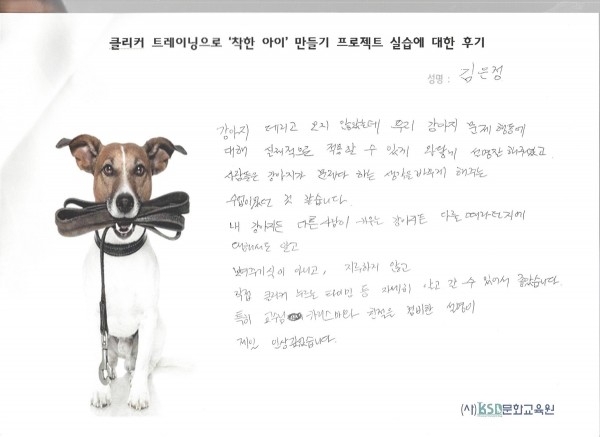 클리커 트레이닝으로 '착한 아이' 만들기 프로젝트 실습에 대한 후기
성명 : 김은정
강아지 데리고 오지 않았는데 우리 강아지 문제 행동에
대해 실제적으로 적용할 수 있게 와닿게 설명을 해주셨고
사람들은 강아지가 문제다 하는 생각을 바꾸게 해주는
수업이었던 것 같습니다.
내 강아지든 다른 사람이 키우는 강아지든 다를
알고
보여주기식이 아니고, 지루하지 않고
직접 클리커 누르는 타이밍 등 자세히 알고 갈 수 있어서 좋았습니다.
특히 교수님 설명이
제일 인상깊었습니다.
(사)KSD문화교육원